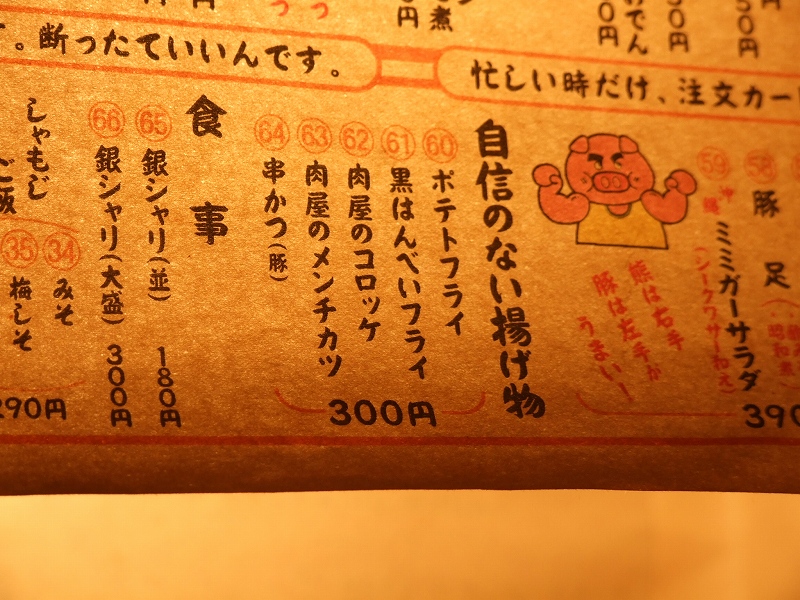 。断ったていいんです。
忙しい時だけ、注文カー
58 豚足
59 沖縄ミミガーサラダ
(シークワサー和え)
390
熊は右手
豚は左手が
うまい!
自信のない揚げ物
60 ポテトフライ
61 黒はんぺいフライ
62 肉屋のコロッケ
63 肉屋のメンチカツ
64 串かつ(豚)
300円
食事
65 銀シャリ(並) 180円
66 銀シャリ(大盛) 300円
しゃもじ
ご飯
34 みそ
35 梅しそ
290円